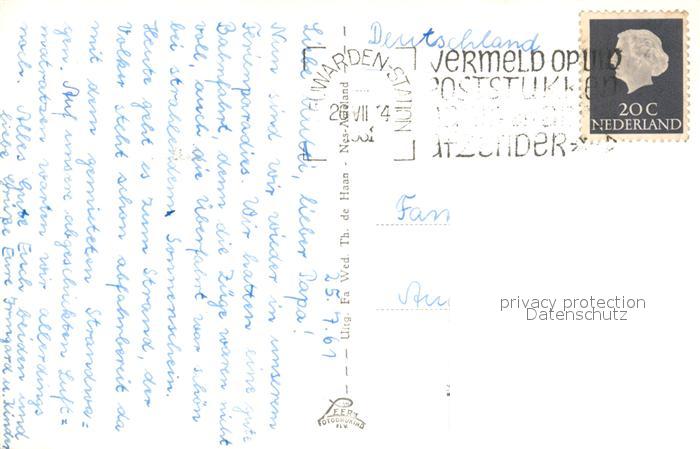 Liebe Mutti, lieber Papa!
25.7.61
Nun sind wir wieder in unserem
Ferienparadies. Wir hatten eine gute
Bahnfahrt, denn die Züge waren nicht
voll, auch die Überfahrt war schön
bei strahlendem Sonnenschein.
Heute geht's zum Strand, der
Volker steht schon abfahrbereit da
mit dem gemieteten Strandwa=
gen. Auf unsere abgeschickten Luft=
matratzen warten wir allerdings
noch. Alles Gute Euch beiden und
liebe Grüße Eure Irmgard u. Kinder
Uitg. Fa Wed. Th. de Haan - Nes-Ameland
LEER
FOTODRUKKERIJ
Deutschland
LEEUWARDEN-STATION
VII 14
VERMELD OP UW
POSTSTUKKEN
AFZENDER
20 C
NEDERLAND
Fam
privacy protection
Datenschutz